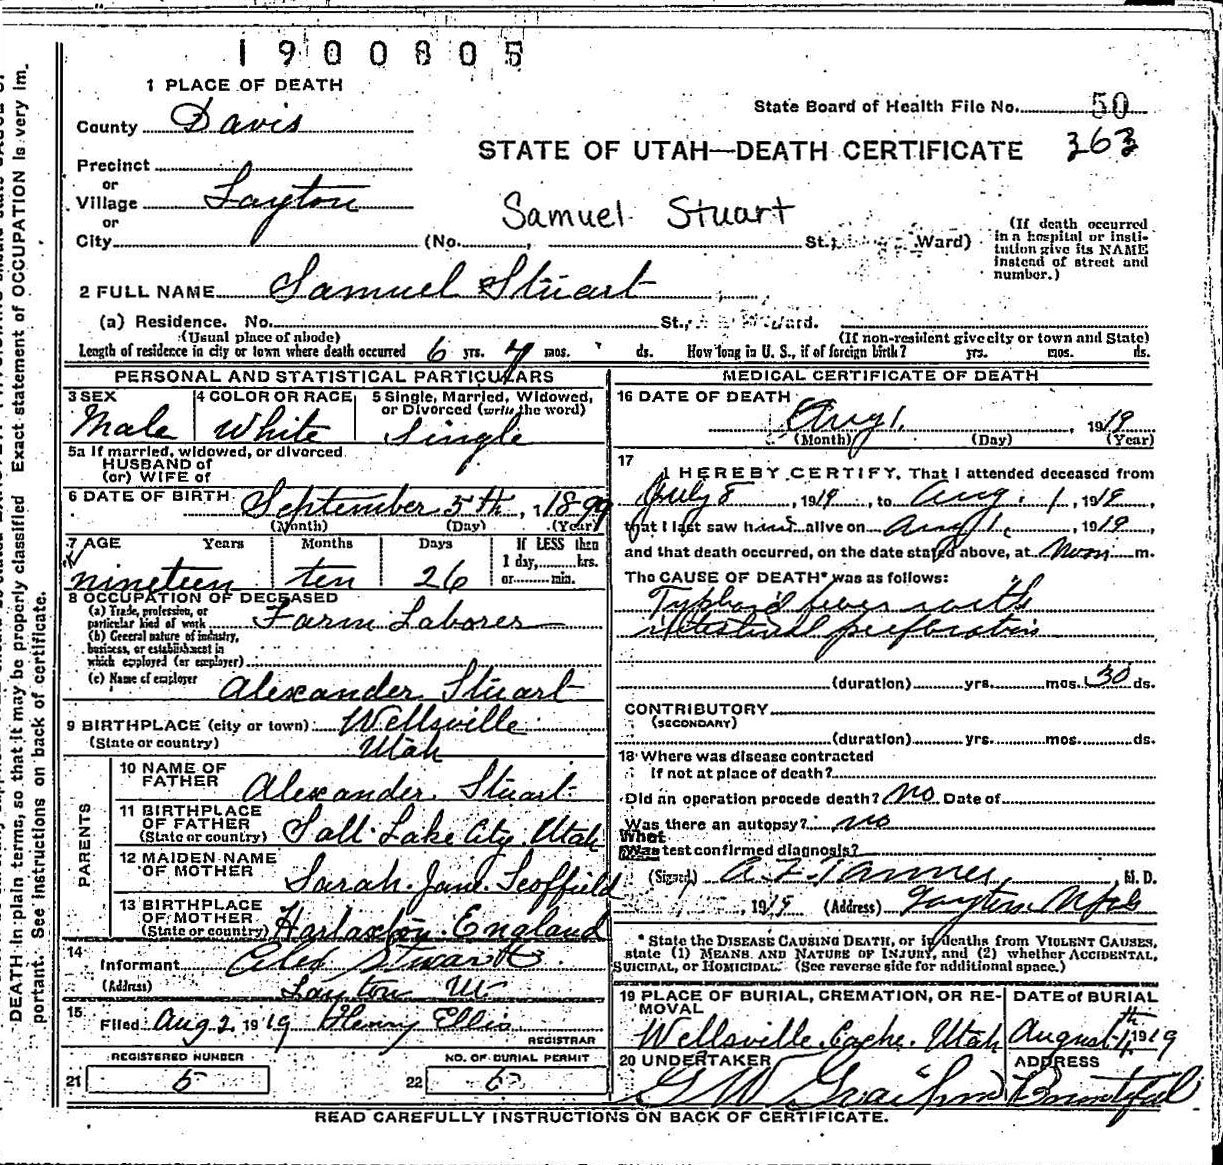 1900805
1 PLACE OF DEATH
State Board of Health File No. 50
County Davis
STATE OF UTAH—DEATH CERTIFICATE 363
Precinct
or
Village Layton
or
Samuel Stuart
City (No. , St., Ward)
(If death occurred in a hospital or institution give its NAME instead of street and number.)
2 FULL NAME Samuel Stuart
(a) Residence. No. St., Ward.
(Usual place of abode) (If non-resident give city or town and State)
Length of residence in city or town where death occurred 6 yrs. 7 mos. ds. How long in U. S., if of foreign birth? yrs. mos. ds.
PERSONAL AND STATISTICAL PARTICULARS
3 SEX 4 COLOR OR RACE 5 Single, Married, Widowed, or Divorced (write the word)
Male White Single
5a If married, widowed, or divorced
HUSBAND of
(or) WIFE of
6 DATE OF BIRTH September 5th, 1899
(Month) (Day) (Year)
7 AGE Years Months Days If LESS then
1 day, hrs.
or min.
nineteen ten 26
8 OCCUPATION OF DECEASED
(a) Trade, profession, or particular kind of work Farm Laborer
(b) General nature of industry, business, or establishment in which employed (or employer)
(c) Name of employer Alexander Stuart
9 BIRTHPLACE (city or town) Wellsville
(State or country) Utah
PARENTS
10 NAME OF FATHER Alexander Stuart
11 BIRTHPLACE OF FATHER (State or country) Salt Lake City Utah
12 MAIDEN NAME OF MOTHER Sarah Jane Scoffield
13 BIRTHPLACE OF MOTHER (State or country) Harlaxton England
14 Informant Alex Stuart
(Address) Layton Ut
15 Filed Aug 2, 1919 Henry Ellis
REGISTRAR
REGISTERED NUMBER NO. OF BURIAL PERMIT
21 5 22 6
MEDICAL CERTIFICATE OF DEATH
16 DATE OF DEATH Aug 1, 1919
(Month) (Day) (Year)
17 I HEREBY CERTIFY, That I attended deceased from
July 8, 1919, to Aug. 1, 1919
that I last saw him alive on Aug 1, 1919
and that death occurred, on the date stated above, at Noon m.
The CAUSE OF DEATH* was as follows:
Typhoid fever with
intestinal perforation
(duration) yrs. mos. 30 ds.
CONTRIBUTORY
(SECONDARY)
(duration) yrs. mos. ds.
18 Where was disease contracted
If not at place of death?
Did an operation precede death? no Date of
Was there an autopsy? no
What
Was test confirmed diagnosis?
(Signed) A. Z. Tanner, M. D.
, 1919 (Address) Layton Utah
* State the DISEASE CAUSING DEATH, or in deaths from VIOLENT CAUSES,
state (1) MEANS AND NATURE OF INJURY, and (2) whether ACCIDENTAL,
SUICIDAL, or HOMICIDAL. (See reverse side for additional space.)
19 PLACE OF BURIAL, CREMATION, OR REMOVAL DATE of BURIAL
Wellsville Cache Utah August 4th 1919
20 UNDERTAKER ADDRESS
G W Bountiful
READ CAREFULLY INSTRUCTIONS ON BACK OF CERTIFICATE.
Exact statement of OCCUPATION is very im-
DEATH in plain terms, so that it may be properly classified
portant. See instructions on back of certificate.